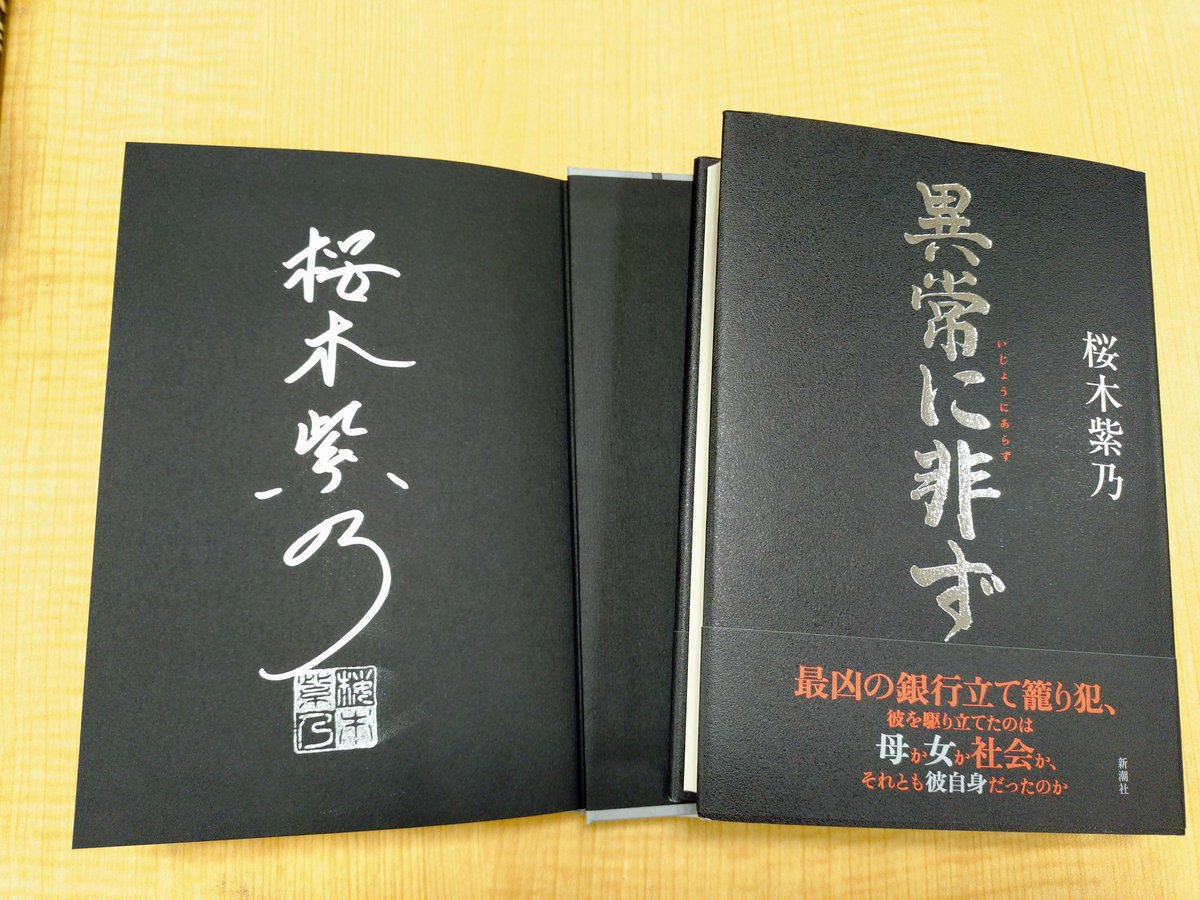 桜木紫乃
桜木
紫乃
異常に非ず
いじょうにあらず
桜木紫乃
最凶の銀行立て籠り犯、
彼を駆り立てたのは
母か女か社会か、
それとも彼自身だったのか
新潮社